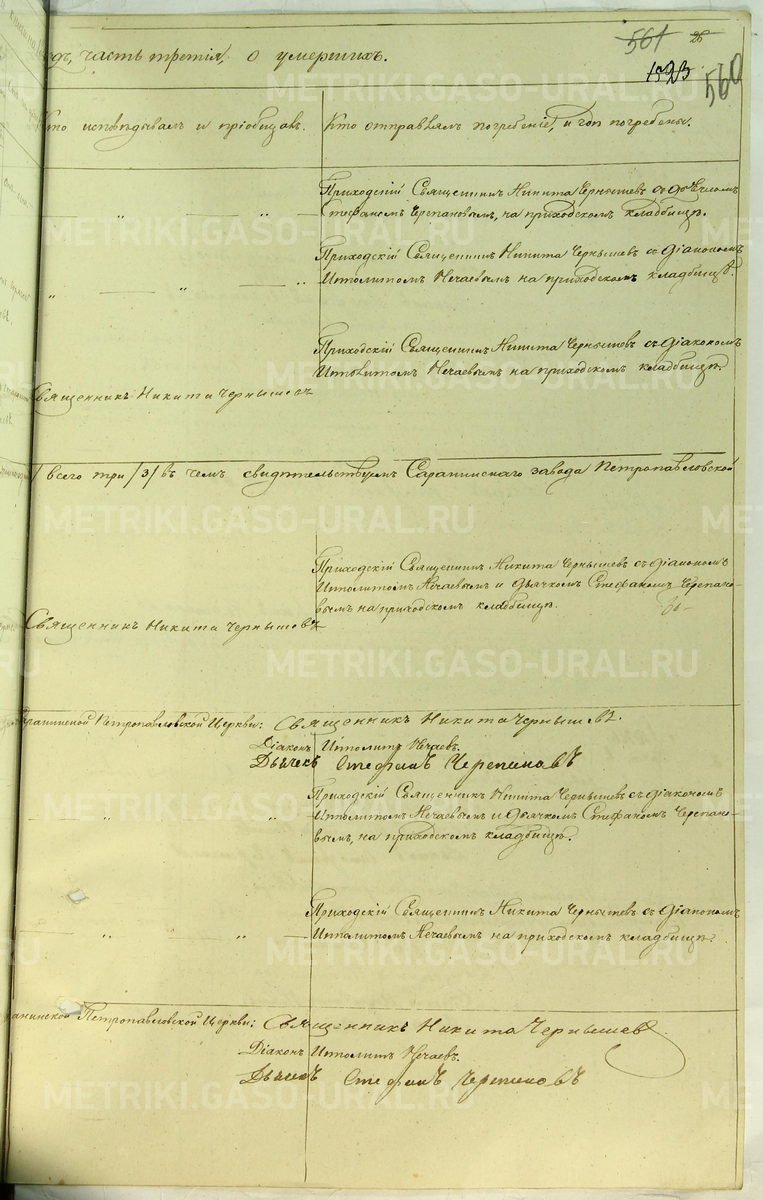 561 26
1523 560
одъ, часть третія, о умершихъ.
Кто исповѣдывалъ и пріобщалъ. Кто отправлялъ погребеніе, и гдѣ погребены.
Приходскій Священникъ Никита Чернышевъ съ дьячкомъ
Стефаномъ Черепановымъ, на приходскомъ кладбищѣ.
Приходскій Священникъ Никита Чернышевъ съ діакономъ
Ипполитомъ Нечаевымъ на приходскомъ кладбищѣ.
Приходскій Священникъ Никита Чернышевъ съ діакономъ
Ипполитомъ Нечаевымъ на приходскомъ кладбищѣ.
Священникъ Никита Чернышевъ
всего три /3/ въ чемъ свидѣтельствуемъ Саранинскаго завода Петропавловской
Приходскій Священникъ Никита Чернышевъ съ діакономъ
Ипполитомъ Нечаевымъ и дьячкомъ Стефаномъ Черепано-
вымъ на приходскомъ кладбищѣ.
Священникъ Никита Чернышевъ
Саранинской Петропавловской Церкви: Священникъ Никита Чернышевъ.
Діаконъ Ипполитъ Нечаевъ.
Дьячекъ Стефанъ Черепановъ
Приходскій Священникъ Никита Чернышевъ съ діакономъ
Ипполитомъ Нечаевымъ и дьячкомъ Стефаномъ Черепано-
вымъ, на приходскомъ кладбищѣ.
Приходскій Священникъ Никита Чернышевъ съ діакономъ
Ипполитомъ Нечаевымъ на приходскомъ кладбищѣ.
анинской Петропавловской Церкви: Священникъ Никита Чернышевъ
Діаконъ Ипполитъ Нечаевъ.
Дьячекъ Стефанъ Черепановъ
METRIKI.GASO-URAL.RU